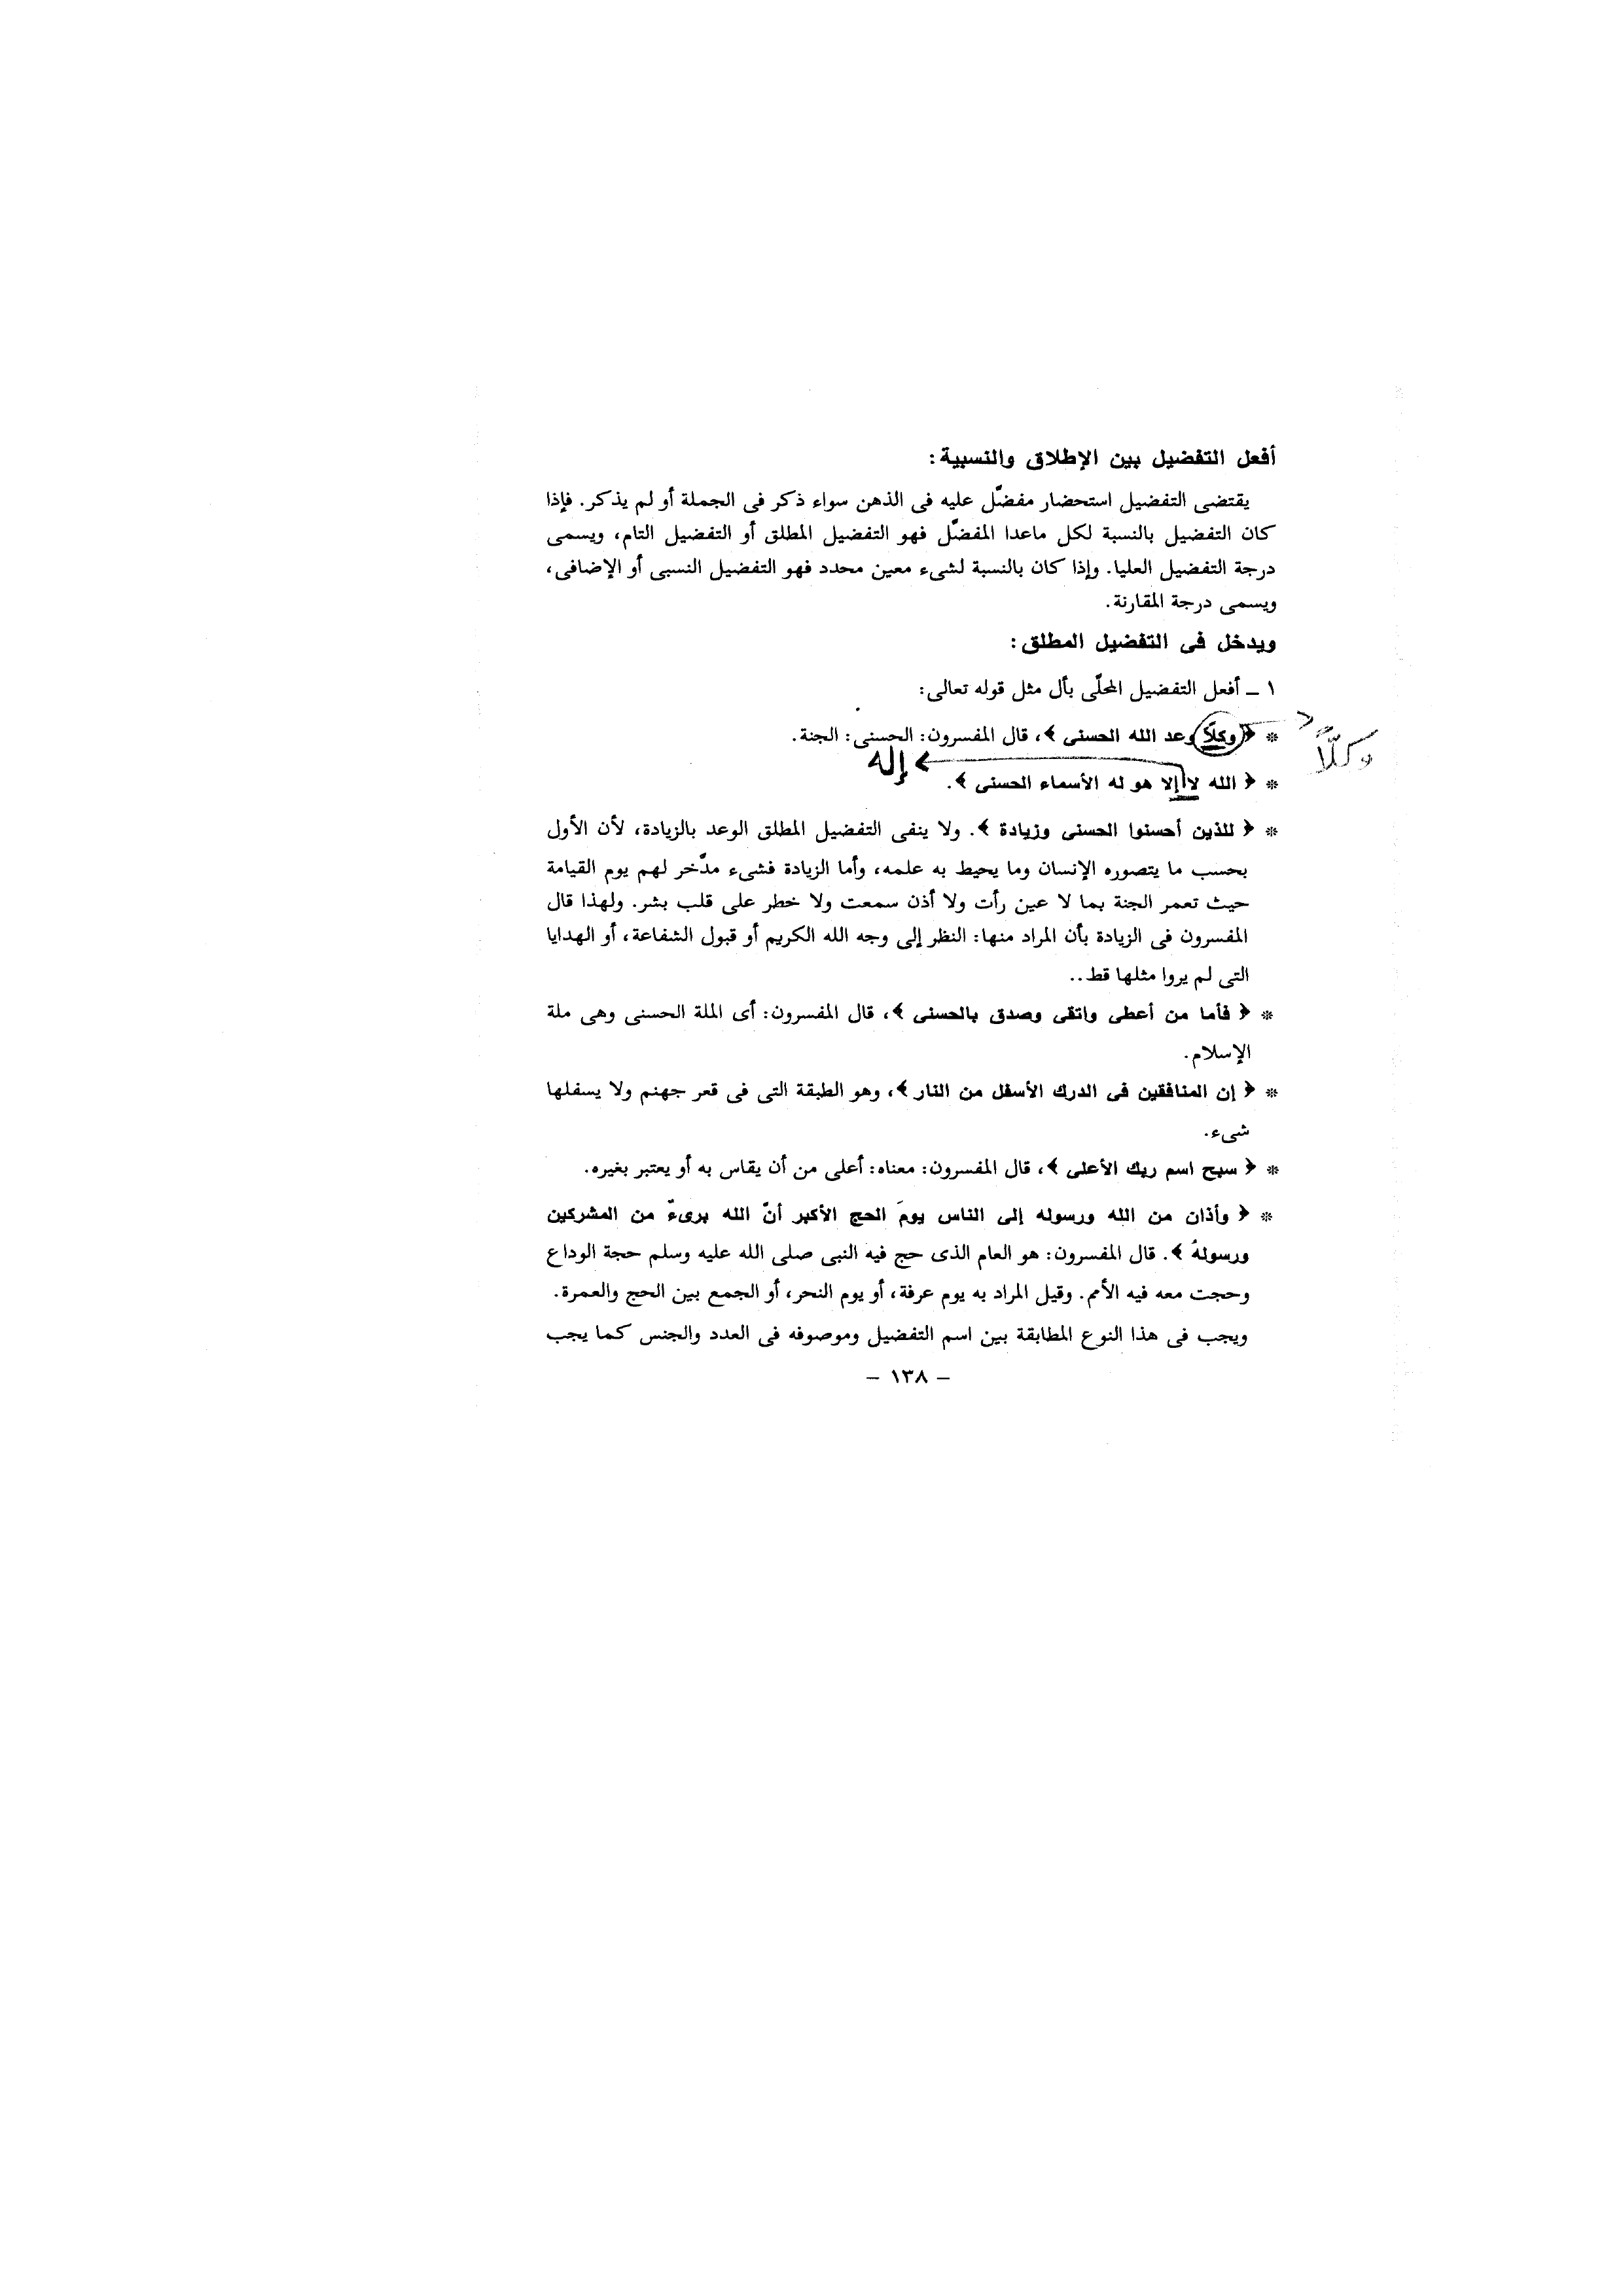 أفعل التفضيل بين الإطلاق والنسبية:
يقتضى التفضيل استحضار مفضّل عليه فى الذهن سواء ذكر فى الجملة أو لم يذكر. فإذا
كان التفضيل بالنسبة لكل ماعدا المفضّل فهو التفضيل المطلق أو التفضيل التام، ويسمى
درجة التفضيل العليا. وإذا كان بالنسبة لشىء معين محدد فهو التفضيل النسبى أو الإضافى،
ويسمى درجة المقارنة.
ويدخل فى التفضيل المطلق:
١ ــ أفعل التفضيل المحلّى بأل مثل قوله تعالى:
* ﴿ وكلاّ وعد الله الحسنى ﴾، قال المفسرون: الحسنى: الجنة.
وكلّاً
إله
* ﴿ الله لا إلا هو له الأسماء الحسنى ﴾.
* ﴿ للذين أحسنوا الحسنى وزيادة ﴾. ولا ينفى التفضيل المطلق الوعد بالزيادة، لأن الأول
بحسب ما يتصوره الإنسان وما يحيط به علمه، وأما الزيادة فشىء مدّخر لهم يوم القيامة
حيث تعمر الجنة بما لا عين رأت ولا أذن سمعت ولا خطر على قلب بشر. ولهذا قال
المفسرون فى الزيادة بأن المراد منها: النظر إلى وجه الله الكريم أو قبول الشفاعة، أو الهدايا
التى لم يروا مثلها قط..
* ﴿ فأما من أعطى واتقى وصدق بالحسنى ﴾، قال المفسرون: أى الملة الحسنى وهى ملة
الإسلام.
* ﴿ إن المنافقين فى الدرك الأسفل من النار ﴾، وهو الطبقة التى فى قعر جهنم ولا يسفلها
شىء.
* ﴿ سبح اسم ربك الأعلى ﴾، قال المفسرون: معناه: أعلى من أن يقاس به أو يعتبر بغيره.
* ﴿ وأذان من الله ورسوله إلى الناس يومَ الحج الأكبر أنّ الله برىءٌ من المشركين
ورسولهُ ﴾. قال المفسرون: هو العام الذى حج فيه النبى صلى الله عليه وسلم حجة الوداع
وحجت معه فيه الأمم. وقيل المراد به يوم عرفة، أو يوم النحر، أو الجمع بين الحج والعمرة.
ويجب فى هذا النوع المطابقة بين اسم التفضيل وموصوفه فى العدد والجنس كما يجب
– ١٣٨ –